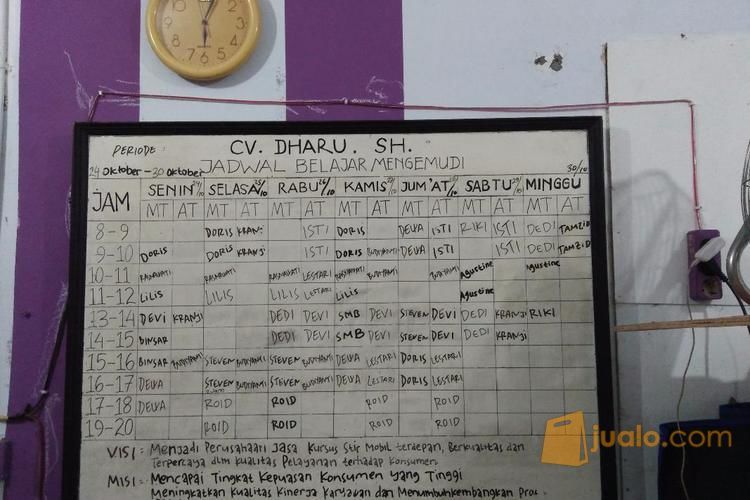 CV. DHARU. SH.
PERIODE:
24 Oktober - 30 Oktober JADWAL BELAJAR MENGEMUDI 30/10
JAM SENIN 24/10 SELASA 25/10 RABU 26/10 KAMIS JUM'AT SABTU MINGGU
MT AT MT AT MT AT MT AT MT AT MT AT MT AT
8-9 DORIS KRANJI ISTI DORIS DEWA ISTI RIKI ISTI DEDI TAMZID
9-10 DORIS DORIS KRANJI ISTI DORIS BUDHYAMI DEWA ISTI ISTI DEDI TAMZID
10-11 RASMIATI RASMIATI RASMIATI LESTARI RASMIATI BUDHYAMI BUDHYAMI Agustine Agustine
11-12 LILIS LILIS LILIS LESTARI LILIS Agustine
13-14 DEVI KRANJI DEDI DEVI SMB DEVI STEVEN DEVI DEDI KRANJI RIKI
14-15 BINSAR DEDI DEVI SMB DEVI STEVEN DEVI DEDI KRANJI
15-16 BINSAR BUDHYAMI STEVEN BUDHYAMI STEVEN BUDHYAMI DEWA LESTARI DORIS LESTARI
16-17 DEWA STEVEN BUDHYAMI STEVEN BUDHYAMI DEWA LESTARI DORIS LESTARI
17-18 DEWA ROID ROID ROID ROID
19-20 ROID ROID ROID ROID
VISI: Menjadi Perusahaan Jasa Kursus Stir Mobil terdepan, Berkualitas dan
Terpercaya dlm Kualitas Pelayanan terhadap Konsumen.
MISI: Mencapai Tingkat Kepuasan Konsumen Yang Tinggi
Meningkatkan Kualitas Kinerja Karyawan dan Menumbuhkembangkan
jualo.com